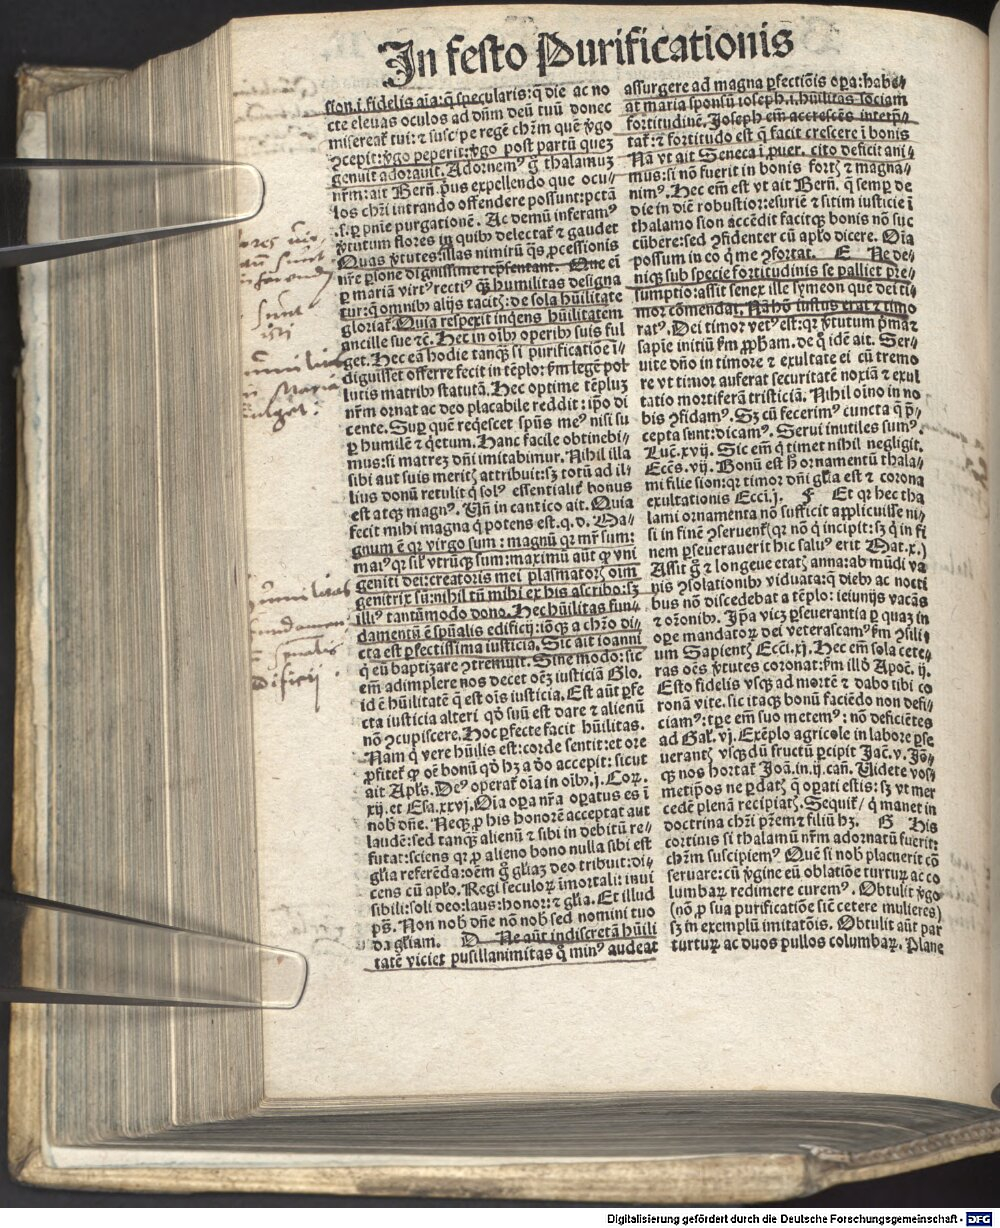 In festo Purificationis
sion.i.fidelis aīa:q̄ specularis:q̄ die ac no
cte eleuas oculos ad dn̄m deū tuū donec
misereat̄ tui:⁊ suscipe regē chr̄m quē v̓go
ↄcepit:v̓go peperit:v̓go post partū quez
genuit adorauit. Adornemꝰ g̊ thalamuz
nr̄m:ait Bern̄. p̓us expellendo que ocu/
los chr̄i intrando offendere possunt:pctā
.s.ꝑ pn̄ie purgationē. Ac demū inferamꝰ
v̓tutum flores in quibꝰ delectat̄ ⁊ gaudet
Quas v̓tutes:illas nimirū q̄s ꝓcessionis
nr̄e ꝑsone dignissime rep̄sentant. Que ei̅
ꝑ mariā virtꝰ rectiꝰ q̄ꝫ humilitas designa
tur:q̄ omnibꝰ alijs tacitꝭ:de sola hūilitate
gloriat̄. Quia respexit inqens hūilitatem
ancille sue ⁊c̄. Hec in oībꝰ operibꝰ suis ful
get. Hec eā hodie tanqꝫ si purificatiōe i̅/
diguisset offerre fecit in tēplo:ẜm legē pol
lutis matribꝰ statutā. Hec optime tēpluz
nr̄m ornat ac deo placabile reddit:ip̄o di
cente. Suꝑ quē reqescet spūs meꝰ nisi su
ꝑ humilē ⁊ q̓etum. Hanc facile obtinebi/
mus:si matrez dn̄i imitabimur. Nihil illa
sibi aut suis meritꝭ attribuit:sꝫ totū ad il/
lius donū retulit q̓ solꝰ essentialit̄ bonus
est atqꝫ magnꝰ. Vn̄ in cantico ait. Quia
fecit mihi magna q̓ potens est.q.d. Ma/
gnum ē qꝛ virgo sum:magnū qꝛ mr̄ sum:
maiꝰ qꝛ sil̄ vtrūqꝫ sum:maximū aūt ꝙ vni
geniti dei:creatoris mei plasmatorꝭ oīm
genitrix sū:nihil tn̄ mihi ex his ascribo:sꝫ
illiꝰ tantūmodo dono. Hec hūilitas fun/
damentū ē spūalis edificij:iōqꝫ a chr̄o di/
cta est ꝑfectissima iusticia. Sic ait ioanni
q̓ eū baptizare ↄtremuit. Sine modo:sic
em̄ adimplere nos decet oēꝫ iusticiā Glo.
id ē hūilitatē q̄ est oīs iusticia. Est aūt ꝑfe
cta iusticia alteri qd̓ suū est dare ⁊ alienū
nō ↄcupiscere. Hoc ꝑfecte facit hūilitas.
Nam q̓ vere hūilis est:corde sentit:et ore
ꝓfitet̄ ꝙ oē bonū qd̓ hꝫ a d̓o accepit:sicut
ait Apl̄s. Deꝰ operat̄ oīa in oībꝰ.j. Cor.
xij.et Esa.xxvj. Oīa oꝑa nr̄a oꝑatus es ī
nob̓ dn̄e. Neqꝫ ꝓ his honorē acceptat aut
laudē:sed tanqꝫ alienū ⁊ sibi in debitū re/
futat:sciens qꝛ ꝓ alieno bono nulla sibi est
gl̓ia referēda:oēm g̊ gl̓iaꝫ deo tribuit:di/
cens cū apl̄o. Regi seculoꝝ īmortali:inui
sibili:soli deo:laus:honor:⁊ gl̓ia. Et illud
pš. Non nob̓ dn̄e nō nob̓ sed nomini tuo
da gl̓iam. D Ne aūt indiscretā hūili
tatē viciet pusillanimitas q̊ minꝰ audeat
assurgere ad magna ꝑfectiōis oꝑa:habe/
at maria sponsū ioseph.i.hūilitas sociam
fortitudinē. Joseph em̄ accrescēs interp̄/
tat̄:⁊ fortitudo est q̄ facit crescere ī bonis
Nā vt ait Seneca ī ꝓuer. cito deficit ani/
mus:si nō fuerit in bonis fortꝭ ⁊ magna/
nimꝰ. Hec em̄ est vt ait Bern̄. q̄ semꝑ de
die in diē robustior:esuriē ⁊ sitim iusticie ī
thalamo sion accēdit facitqꝫ bonis nō suc
cūbere:sed ↄfidenter cū apl̄o dicere. Oīa
possum in eo q̓ me ↄfortat. E Ne de/
niqꝫ sub specie fortitudinis se palliet pre/
sumptio:assit senex ille symeon que dei ti/
mor cōmendat. Nā hō iustus erat ⁊ timo
ratꝰ. Dei timor vetꝰ est:qꝛ v̓tutum p̓ma ⁊
sapīe initiū ẜm ꝓph̓am. de q̊ idē ait. Ser/
uite dn̄o in timore ⁊ exultate ei cū tremo
re vt timor auferat securitatē noxiā ⁊ exul
tatio mortiferā tristiciā. Nihil oīno in no
bis ↄfidamꝰ. Sꝫ cū fecerimꝰ cuncta q̄ p̄/
cepta sunt:dicamꝰ. Serui inutiles sumꝰ.
Luc̄.xvij. Sic em̄ q̓ timet nihil negligit.
Eccs̄. vij. Bonū est h̓ ornamentū thala/
mi filie sion:qꝛ timor dn̄i gl̓ia est ⁊ corona
exultationis Ecci.j. F Et qꝛ hec tha
lami ornamenta nō sufficit applicuisse ni/
si in finē ↄseruent̄(qꝛ nō q̓ incipit:sꝫ q̓ in fi
nem ꝑseuerauerit hic saluꝰ erit Mat.x.)
Assit g̊ ⁊ longeue etatꝭ anna:ab mūdi va
nis ↄsolationibꝰ viduata:q̄ diebꝰ ac nocti
bus nō discedebat a tēplo:ieiunijs vacās
⁊ or̄onibꝰ. Ip̄a vicꝫ ꝑseuerantia ꝑ quaꝫ in
oꝑe mandatoꝝ dei veterascamꝰ ẜm ↄsili
um Sapientꝭ Ecci.xj. Hec em̄ sola cete/
ras oēs v̓tutes coronat:ẜm illd̓ Apoc̄. ij.
Esto fidelis vsqꝫ ad mortē ⁊ dabo tibi co
ronā vite. sic itaqꝫ bonū faciēdo non defi/
ciamꝰ:tꝑe em̄ suo metemꝰ:nō deficiētes
ad Gal̄. vj. Exēplo agricole in labore ꝑse
uerantꝭ vsqꝫ dū fructū ꝑcipit Jac̄. v. Iō/
qꝫ nos hortat̄ Joā.in.ij.can̄. Videte vos/
metip̄os ne ꝑdatꝭ q̄ oꝑati estis:sꝫ vt mer
cedē plenā recipiatꝭ. Sequit̄/ q̓ manet in
doctrina chr̄i pr̄em ⁊ filiū hꝫ. G His
cortinis si thalamū nr̄m adornatū fuerit:
chr̄m suscipiemꝰ Quē si nob̓ placuerit cō
seruare:cū v̓gine eū oblatiōe turtuꝝ ac co
lumbaꝝ redimere curemꝰ. Obtulit v̓go
(nō ꝓ sua purificatiōe sic̄ cetere mulieres)
sꝫ in exemplū imitatōis. Obtulit aūt par
turtuꝝ ac duos pullos columbaꝝ. Plane
sunt
Maria
humilitas
fundamen
spūalis
Digitalisierung gefördert durch die Deutsche Forschungsgemeinschaft - DFG